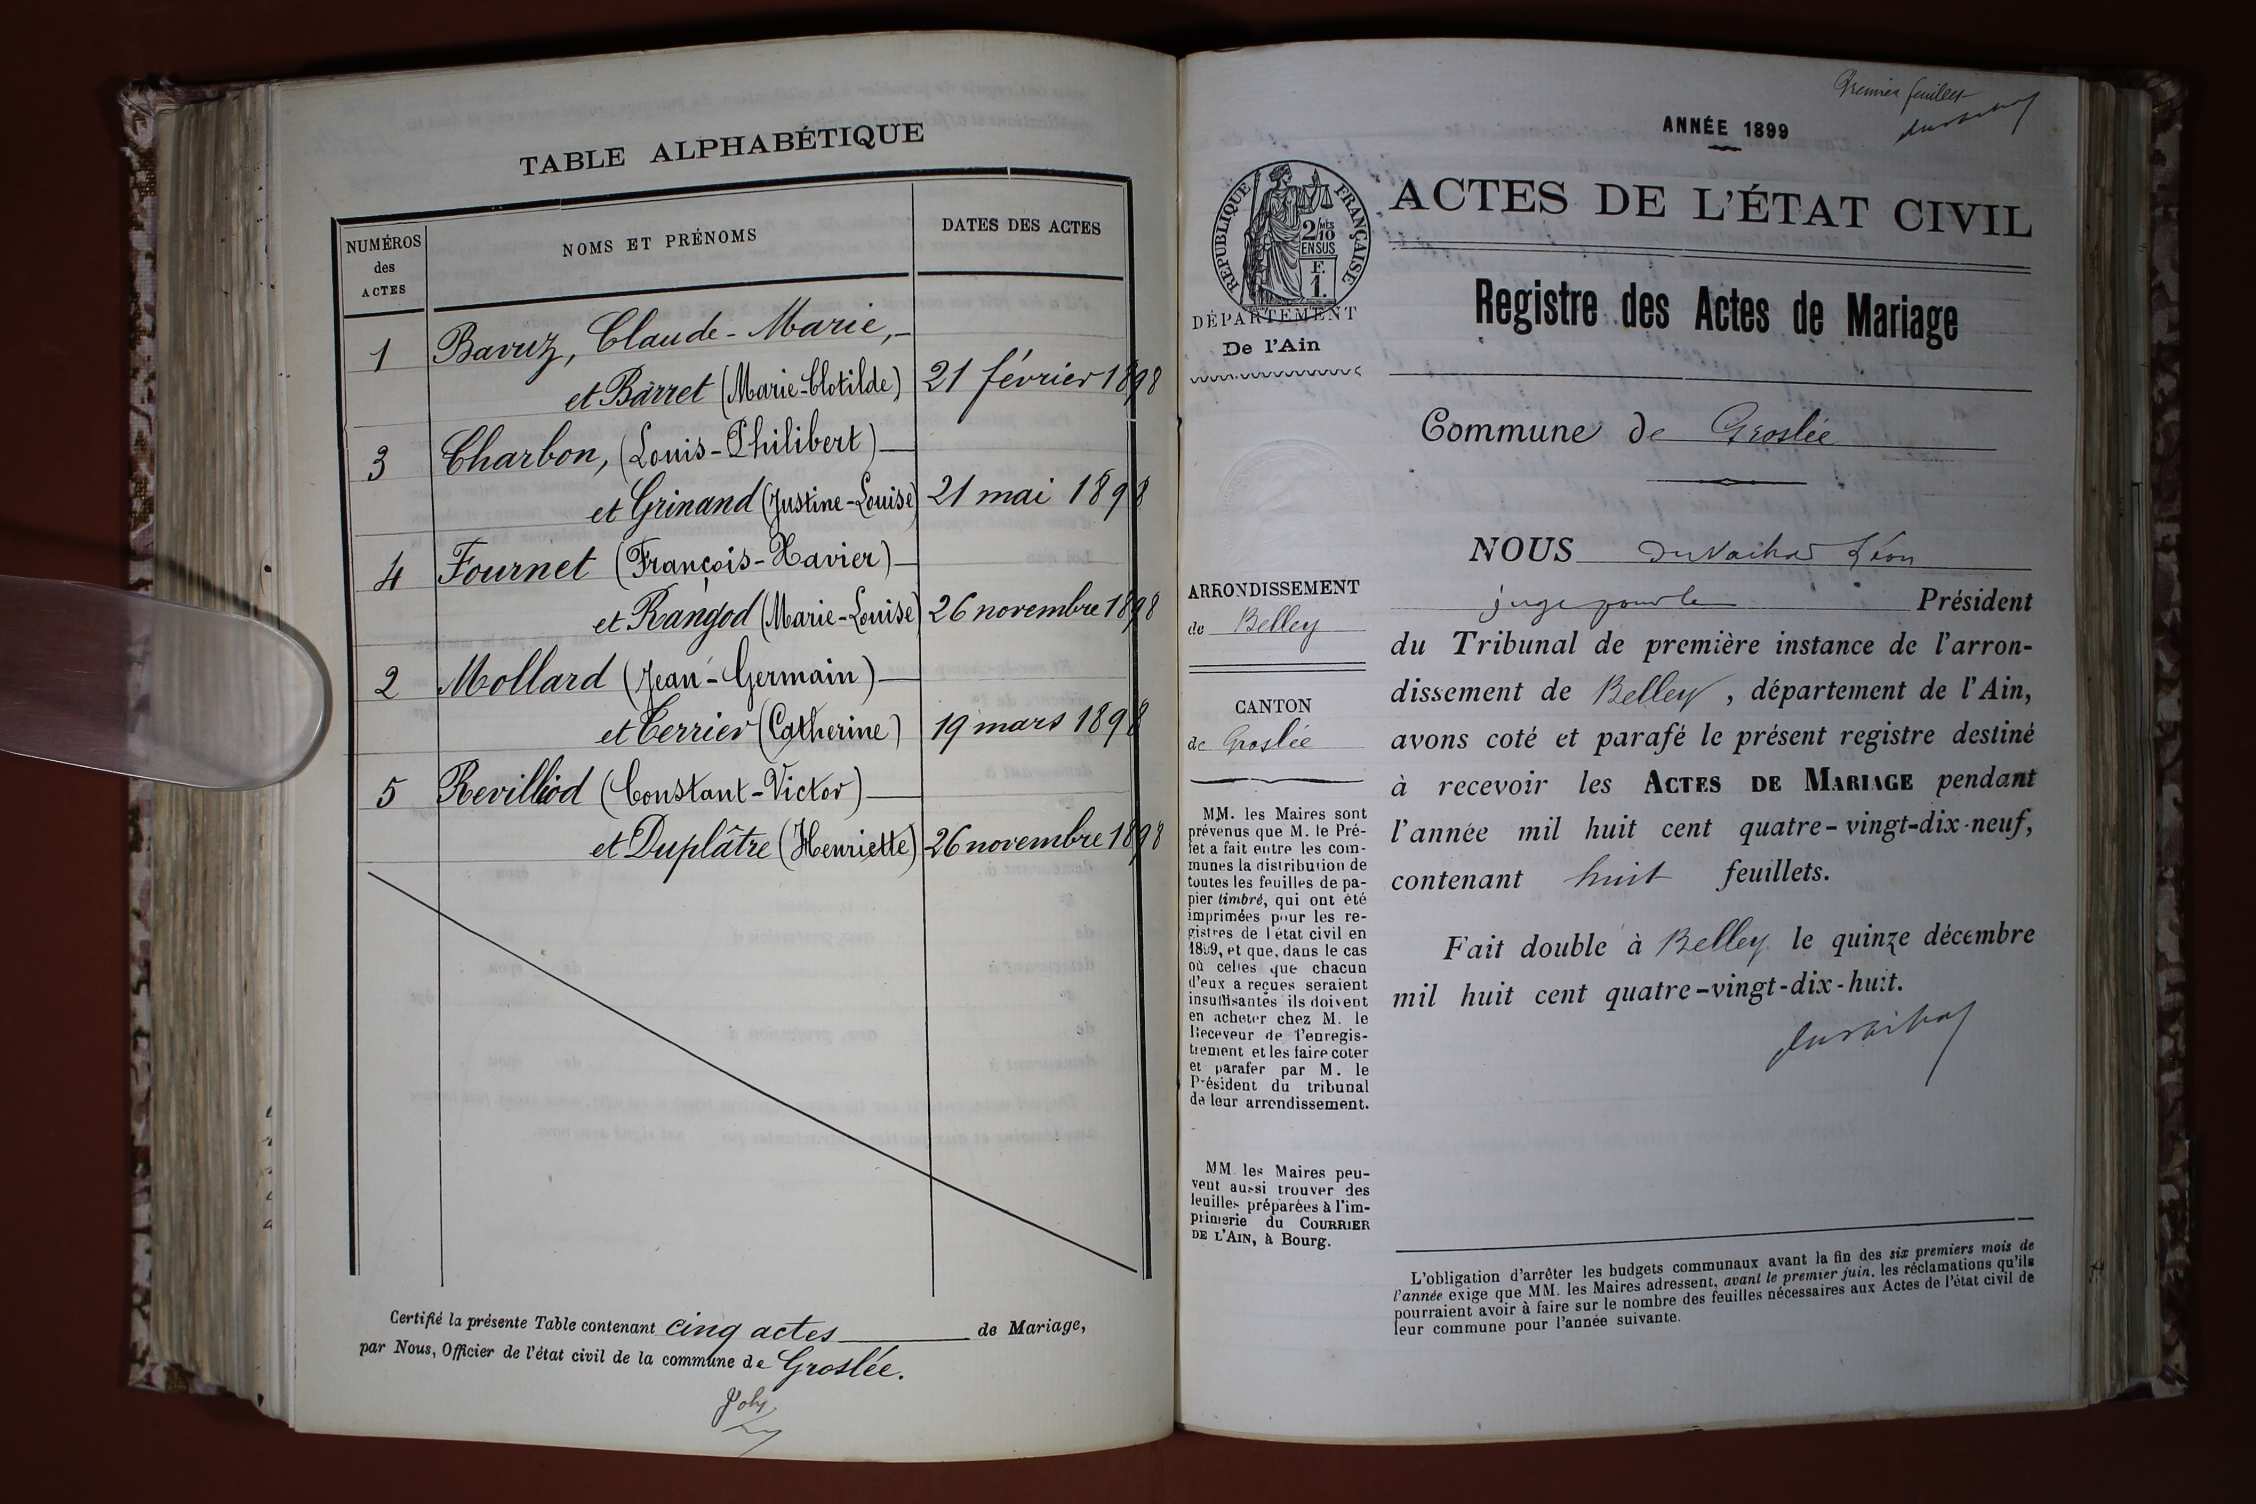 TABLE ALPHABÉTIQUE
NUMÉROS
des
ACTES
NOMS ET PRÉNOMS
DATES DES ACTES
1 Bavuz, Claude-Marie,
et Barret (Marie-Clotilde) 21 février 1898
3 Charbon, (Louis-Philibert)
et Grinand (Justine-Louise) 21 mai 1898
4 Fournet (François-Xavier)
et Rangod (Marie-Louise) 26 novembre 1898
2 Mollard (Jean-Germain)
et Terrier (Catherine) 19 mars 1898
5 Revilliod (Constant-Victor)
et Duplâtre (Henriette) 26 novembre 1898
Certifié la présente Table contenant cinq actes de Mariage,
par Nous, Officier de l'état civil de la commune de Groslée.
Premier feuillet
ANNÉE 1899
RÉPUBLIQUE FRANÇAISE
2/10 MES
EN SUS
F.
1.
DÉPARTEMENT
De l'Ain
ARRONDISSEMENT
de Belley
CANTON
de Groslée
MM. les Maires sont
prévenus que M. le Pré-
fet a fait entre les com-
munes la distribution de
toutes les feuilles de pa-
pier timbré, qui ont été
imprimées pour les re-
gistres de l'état civil en
1899, et que, dans le cas
où celles que chacun
d'eux a reçues seraient
insuffisantes ils doivent
en acheter chez M. le
Receveur de l'enregis-
trement et les faire coter
et parafer par M. le
Président du tribunal
de leur arrondissement.
MM. les Maires peu-
vent aussi trouver des
feuilles préparées à l'im-
primerie du COURRIER
DE L'AIN, à Bourg.
ACTES DE L'ÉTAT CIVIL
Registre des Actes de Mariage
Commune de Groslée
NOUS Léon
juge pour le Président
du Tribunal de première instance de l'arron-
dissement de Belley, département de l'Ain,
avons coté et parafé le présent registre destiné
à recevoir les ACTES DE MARIAGE pendant
l'année mil huit cent quatre-vingt-dix-neuf,
contenant huit feuillets.
Fait double à Belley le quinze décembre
mil huit cent quatre-vingt-dix-huit.
L'obligation d'arrêter les budgets communaux avant la fin des six premiers mois de
l'année exige que MM. les Maires adressent, avant le premier juin, les réclamations qu'ils
pourraient avoir à faire sur le nombre des feuilles nécessaires aux Actes de l'état civil de
leur commune pour l'année suivante.